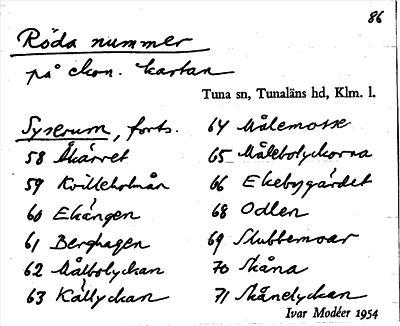 86
Röda nummer
på ekon. kartan
Tuna sn, Tunaläns hd, Klm. l.
Syserum, forts.
58 Åkärret
59 Kvilleholmån
60 Ekängen
61 Berghagen
62 Målbolyckan
63 Källyckan
64 Målemosse
65 Målebolyckorna
66 Ekebygärdet
68 Odlen
69 Stubbemoar
70 Skåna
71 Skånelyckan
Ivar Modéer 1954